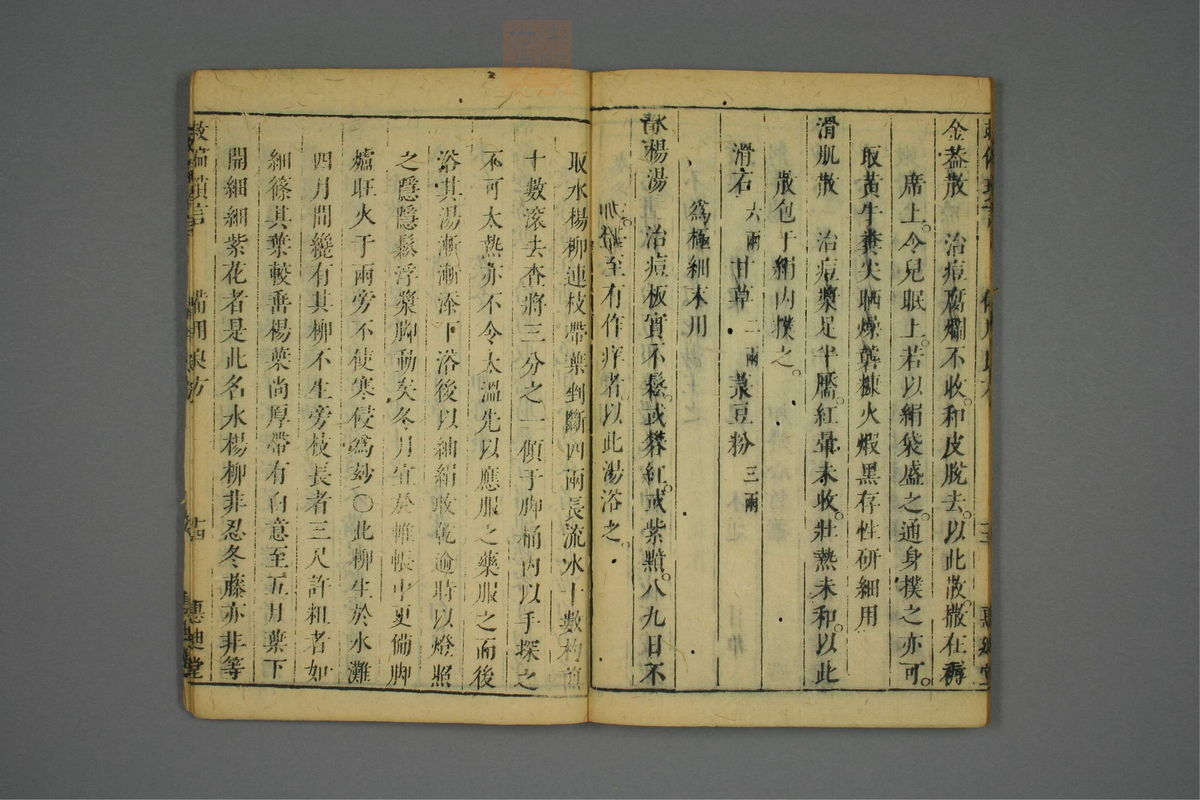 金蓋散 治痘腐爛不收和皮脫去。以此散撒在褥
席上。令兒眠上。若以絹袋盛之。通身撲之亦可。
取黃牛糞尖晒燥礱糠火煆黑存性研細用
滑肌散 治痘漿足半靨。紅暈未收。壯熱未和。以此
散包于絹内撲之。
滑石六兩 甘草二兩 菉豆粉三兩
爲極細末用
水楊湯 治痘板實不鬆。或礬紅。或紫黯。八九日不
加漿。至有作痒者。以此湯浴之。
取水楊柳連枝帶葉剉斷四兩長流水十數杓煎
十數滾去柤將三分之一傾于脚桶内以手探之
不可太熱亦不令太溫先以應服之藥服之而後
浴其湯漸漸添下浴後以紬絹收乾逾時以燈照
之隱隱鬆浮漿脚動矣冬月宜於帷帳中更備脚
爐旺火于兩旁不使寒侵爲妙〇此柳生於水灘
四月間纔有其柳不生旁枝長者三尺許粗者如
細篠其葉較垂楊葉尚厚帶有白意至五月葉下
開細細紫花者是此名水楊柳非忍冬藤亦非等
救偏瑣言 備用良方 十四 惠迪堂